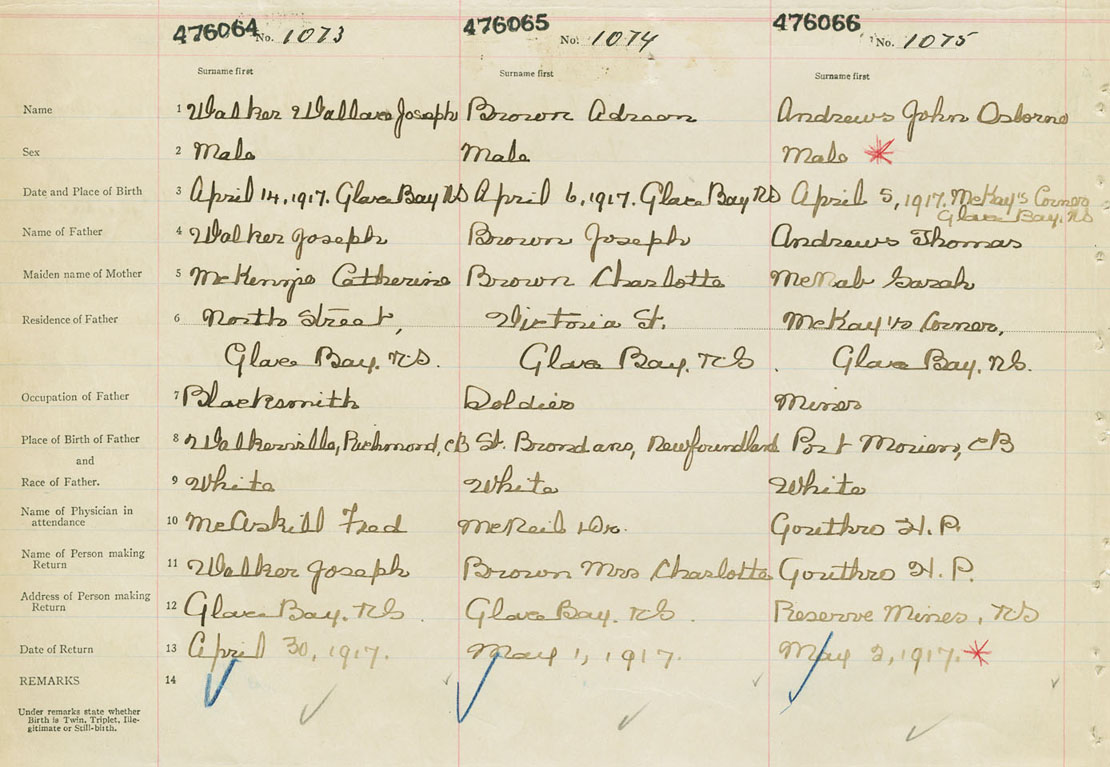 476064 No. 1073 476065 No. 1074 476066 No. 1075
Surname first Surname first Surname first
Name 1 Walker Wallace Joseph Brown Adreon Andrews John Osborne
Sex 2 Male Male Male
Date and Place of Birth 3 April 14, 1917. Glace Bay NS April 6, 1917. Glace Bay NS April 5, 1917. McKay's Corner
Glace Bay, NS
Name of Father 4 Walker Joseph Brown Joseph Andrews Thomas
Maiden name of Mother 5 McKenzie Catherine Brown Charlotte McNab Sarah
Residence of Father 6 North Street, Victoria St. McKay's Corner,
Glace Bay, NS. Glace Bay, NS Glace Bay, NS.
Occupation of Father 7 Blacksmith Soldier Miner
Place of Birth of Father 8 Walkerville, Richmond, CB St. Brendans, Newfoundland Port Morien, CB
and
Race of Father. 9 White White White
Name of Physician in
attendance 10 McAskill Fred McNeil Dr. Gouthro H. P.
Name of Person making
Return 11 Walker Joseph Brown Mrs Charlotte Gouthro H. P.
Address of Person making
Return 12 Glace Bay, NS. Glace Bay, NS. Reserve Mines, NS
Date of Return 13 April 30, 1917. May 1, 1917. May 2, 1917.
REMARKS 14
Under remarks state whether
Birth is Twin, Triplet, Ille-
gitimate or Still-birth.